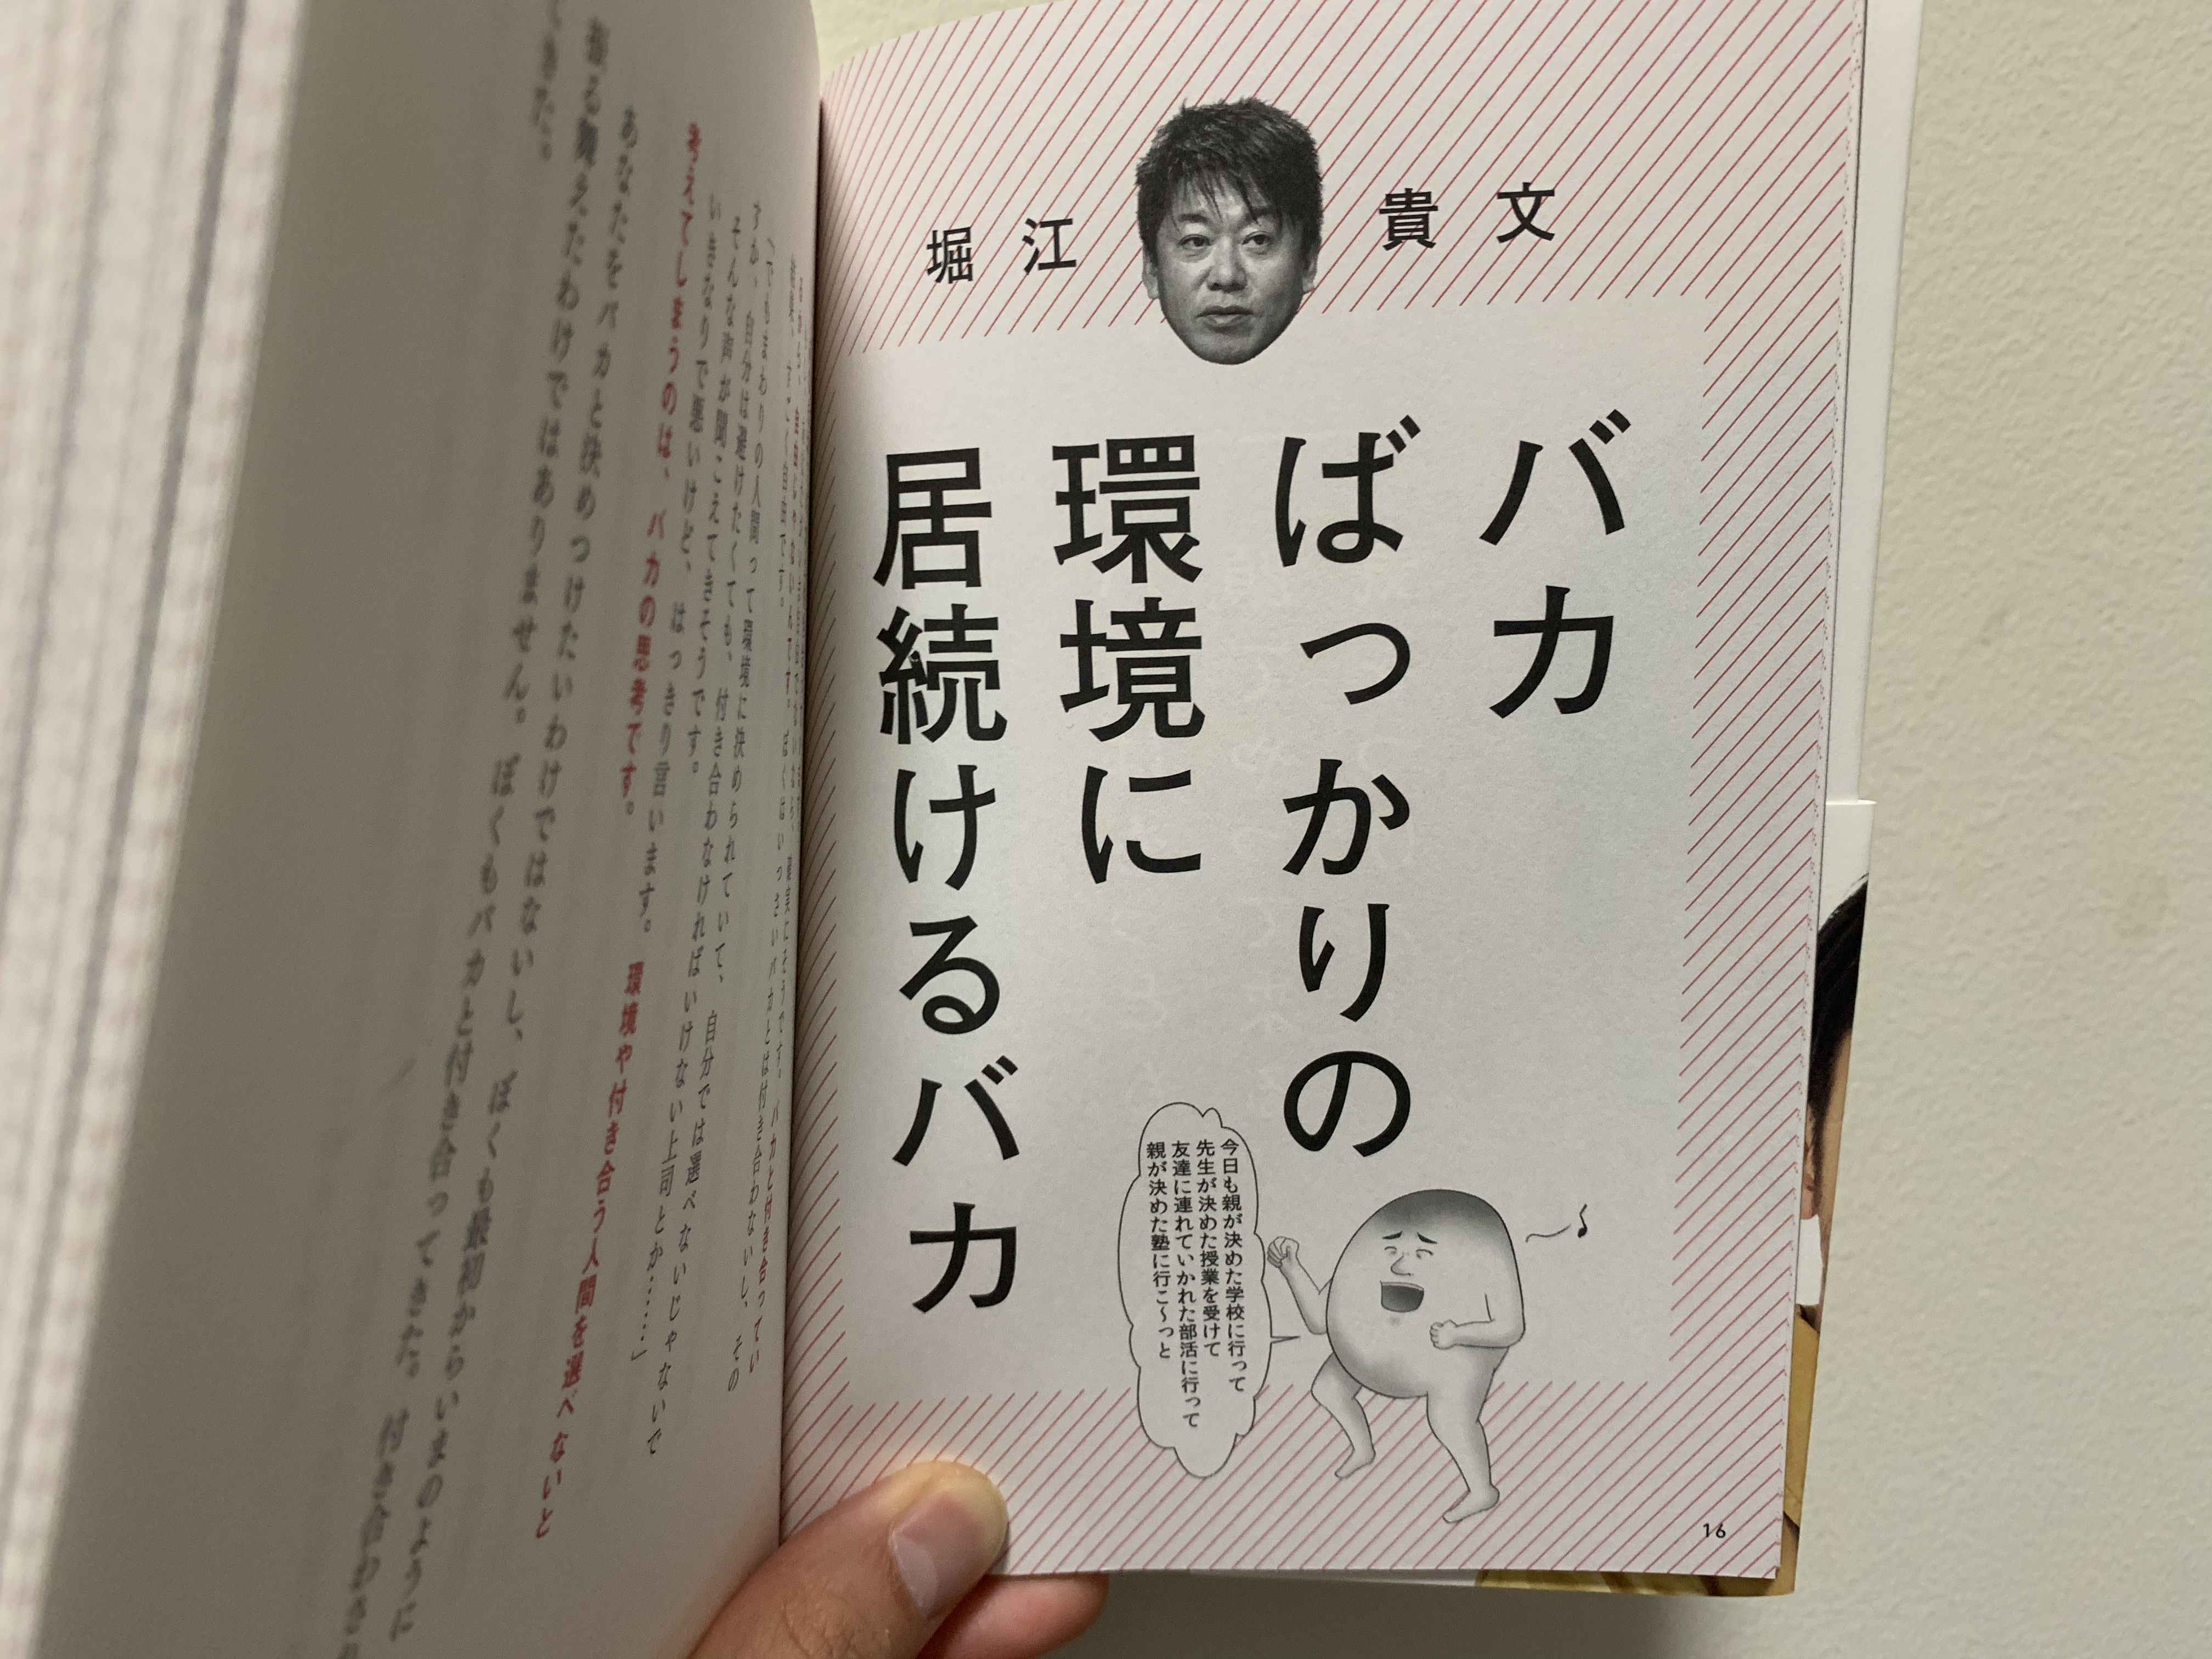 堀江 貴文
バカ
ばっかりの
環境に
居続けるバカ
今日も親が決めた学校に行って
先生が決めた授業を受けて
友達に連れていかれた部活に行って
親が決めた塾に行こ〜っと
16
「でもまわりの人間って環境に決められていて、自分では選べないじゃないで
すか、自分は避けたくても、付き合わなければいけない上司とか……」
そんな声が聞こえてきそうです。
いきなりで悪いけど、はっきり言います。環境や付き合う人間を選べないと
考えてしまうのは、バカの思考です。
あなたをバカと決めつけたいわけではないし、ぼくも最初からいまのように
振る舞えたわけではありません。ぼくもバカと付き合ってきた。付き合わされ
てきた。